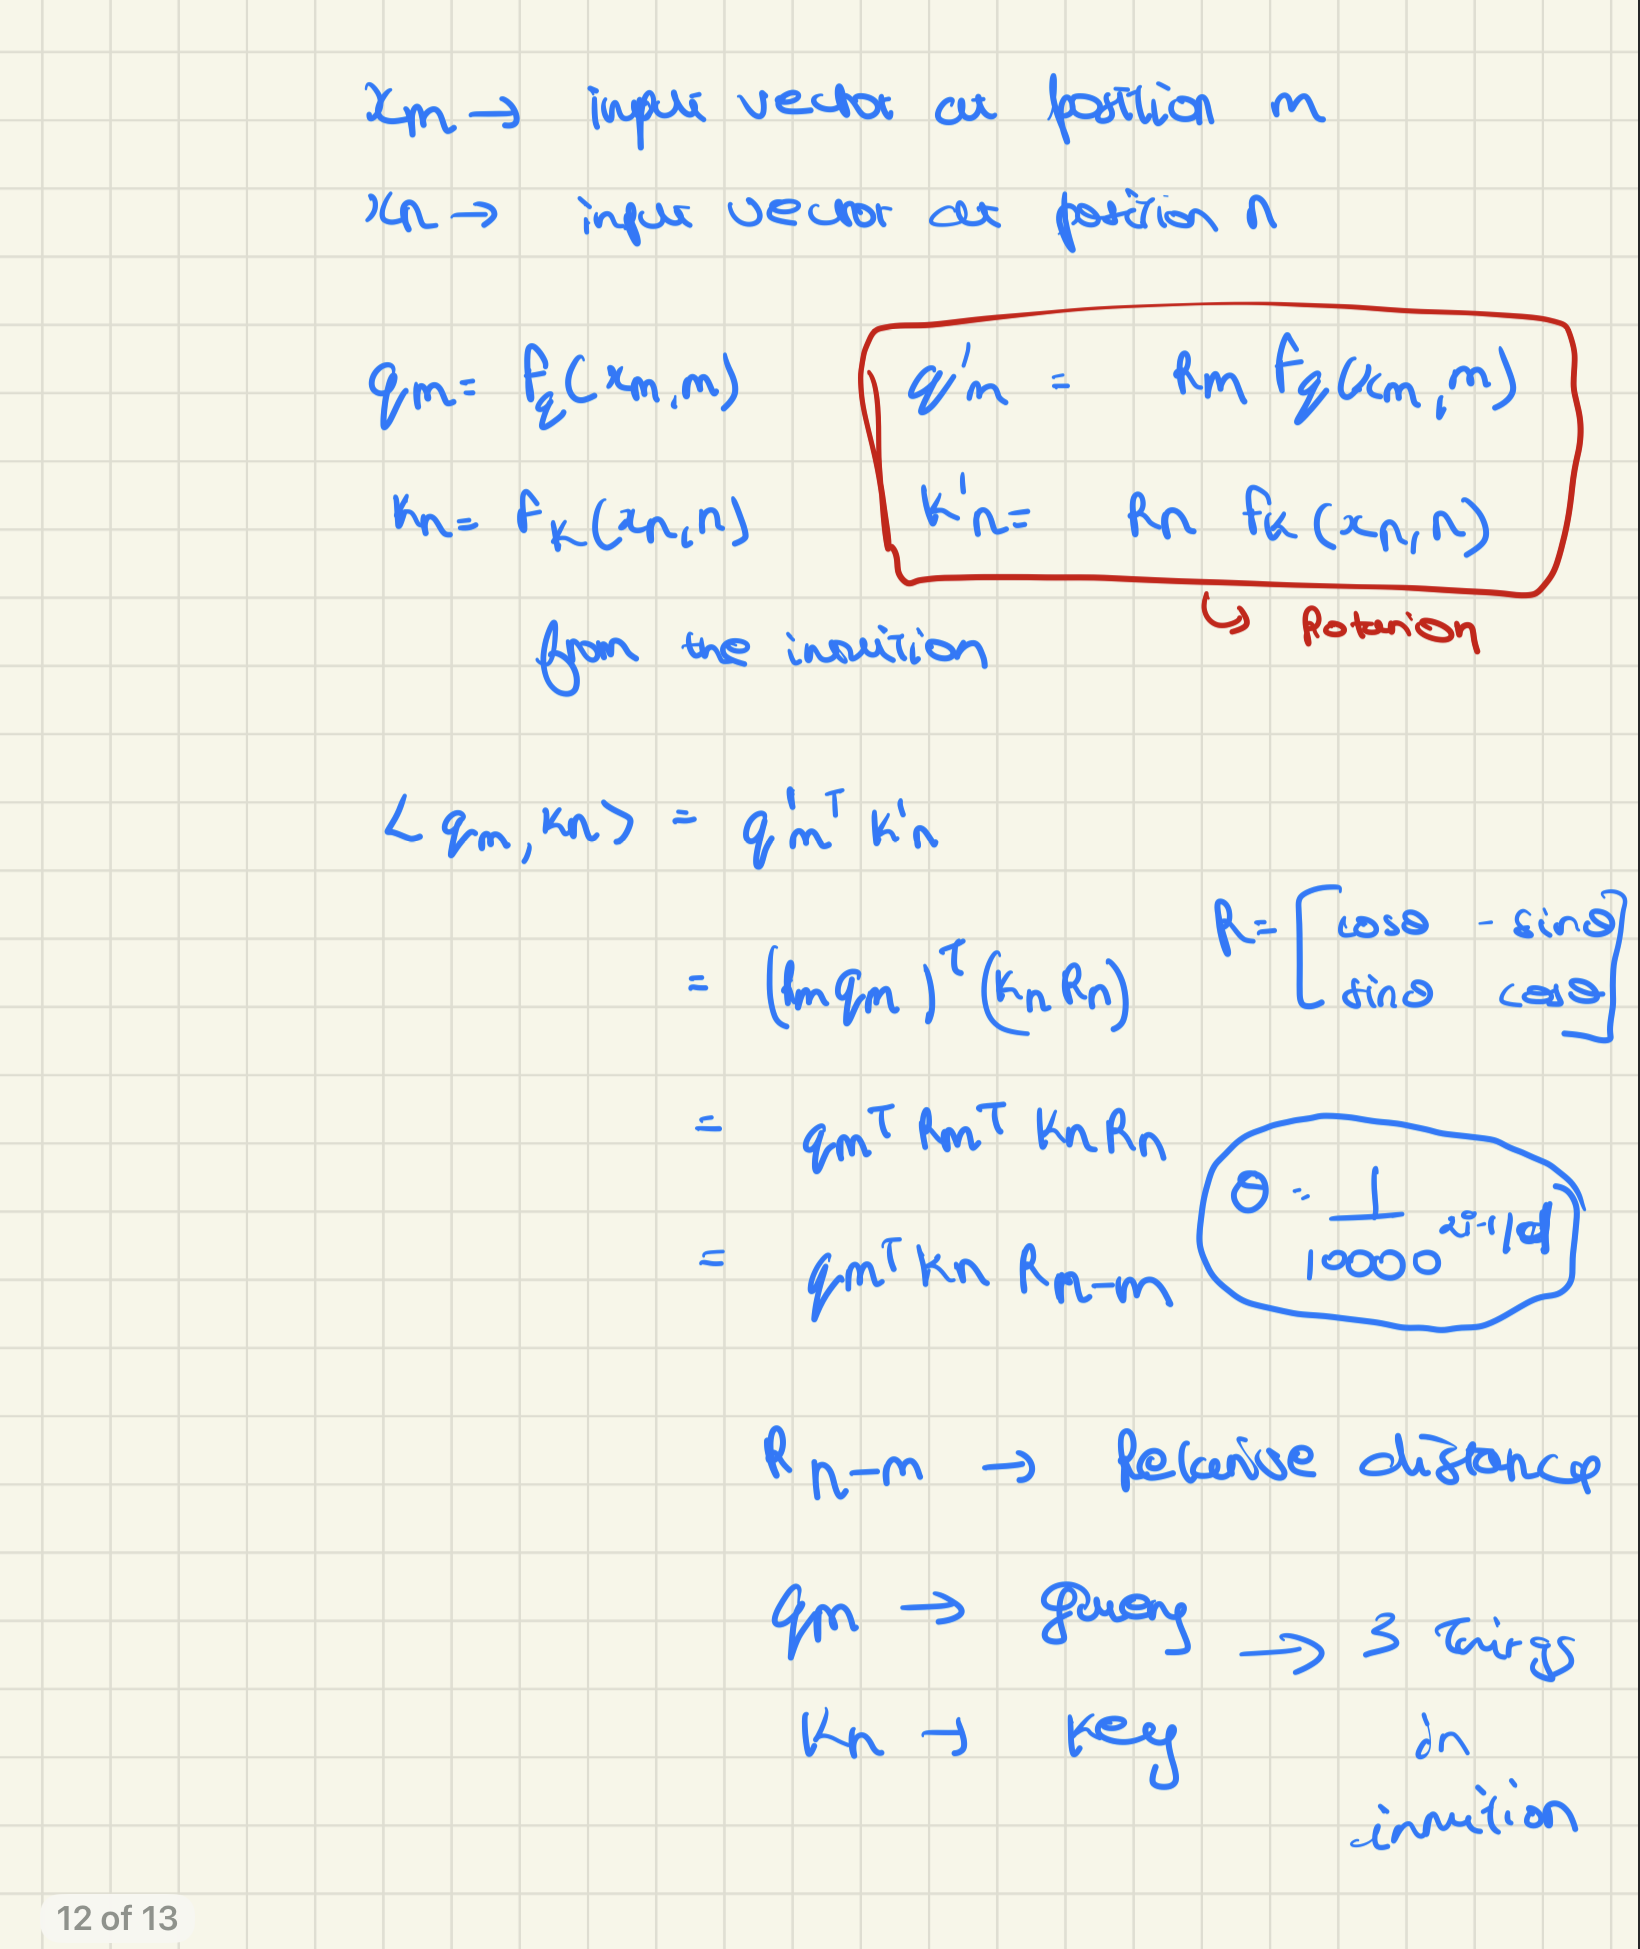 xm → input vector at position m
xn → input vector at position n
qm = fq(xm, m)
q'm = Rm fq(xm, m)
kn = fk(xn, n)
k'n = Rn fk(xn, n)
↳ Rotation
from the intuition
<qm, kn> = q'm^T k'n
= (Rm qm)^T (kn Rn)
R = [cosθ -sinθ
sinθ cosθ]
= qm^T Rm^T kn Rn
θ = 1/10000^2i-1/d
= qm^T kn Rn-m
Rn-m → Relative distance
qm → Query
→ 3 things
kn → key
in
intuition
12 of 13